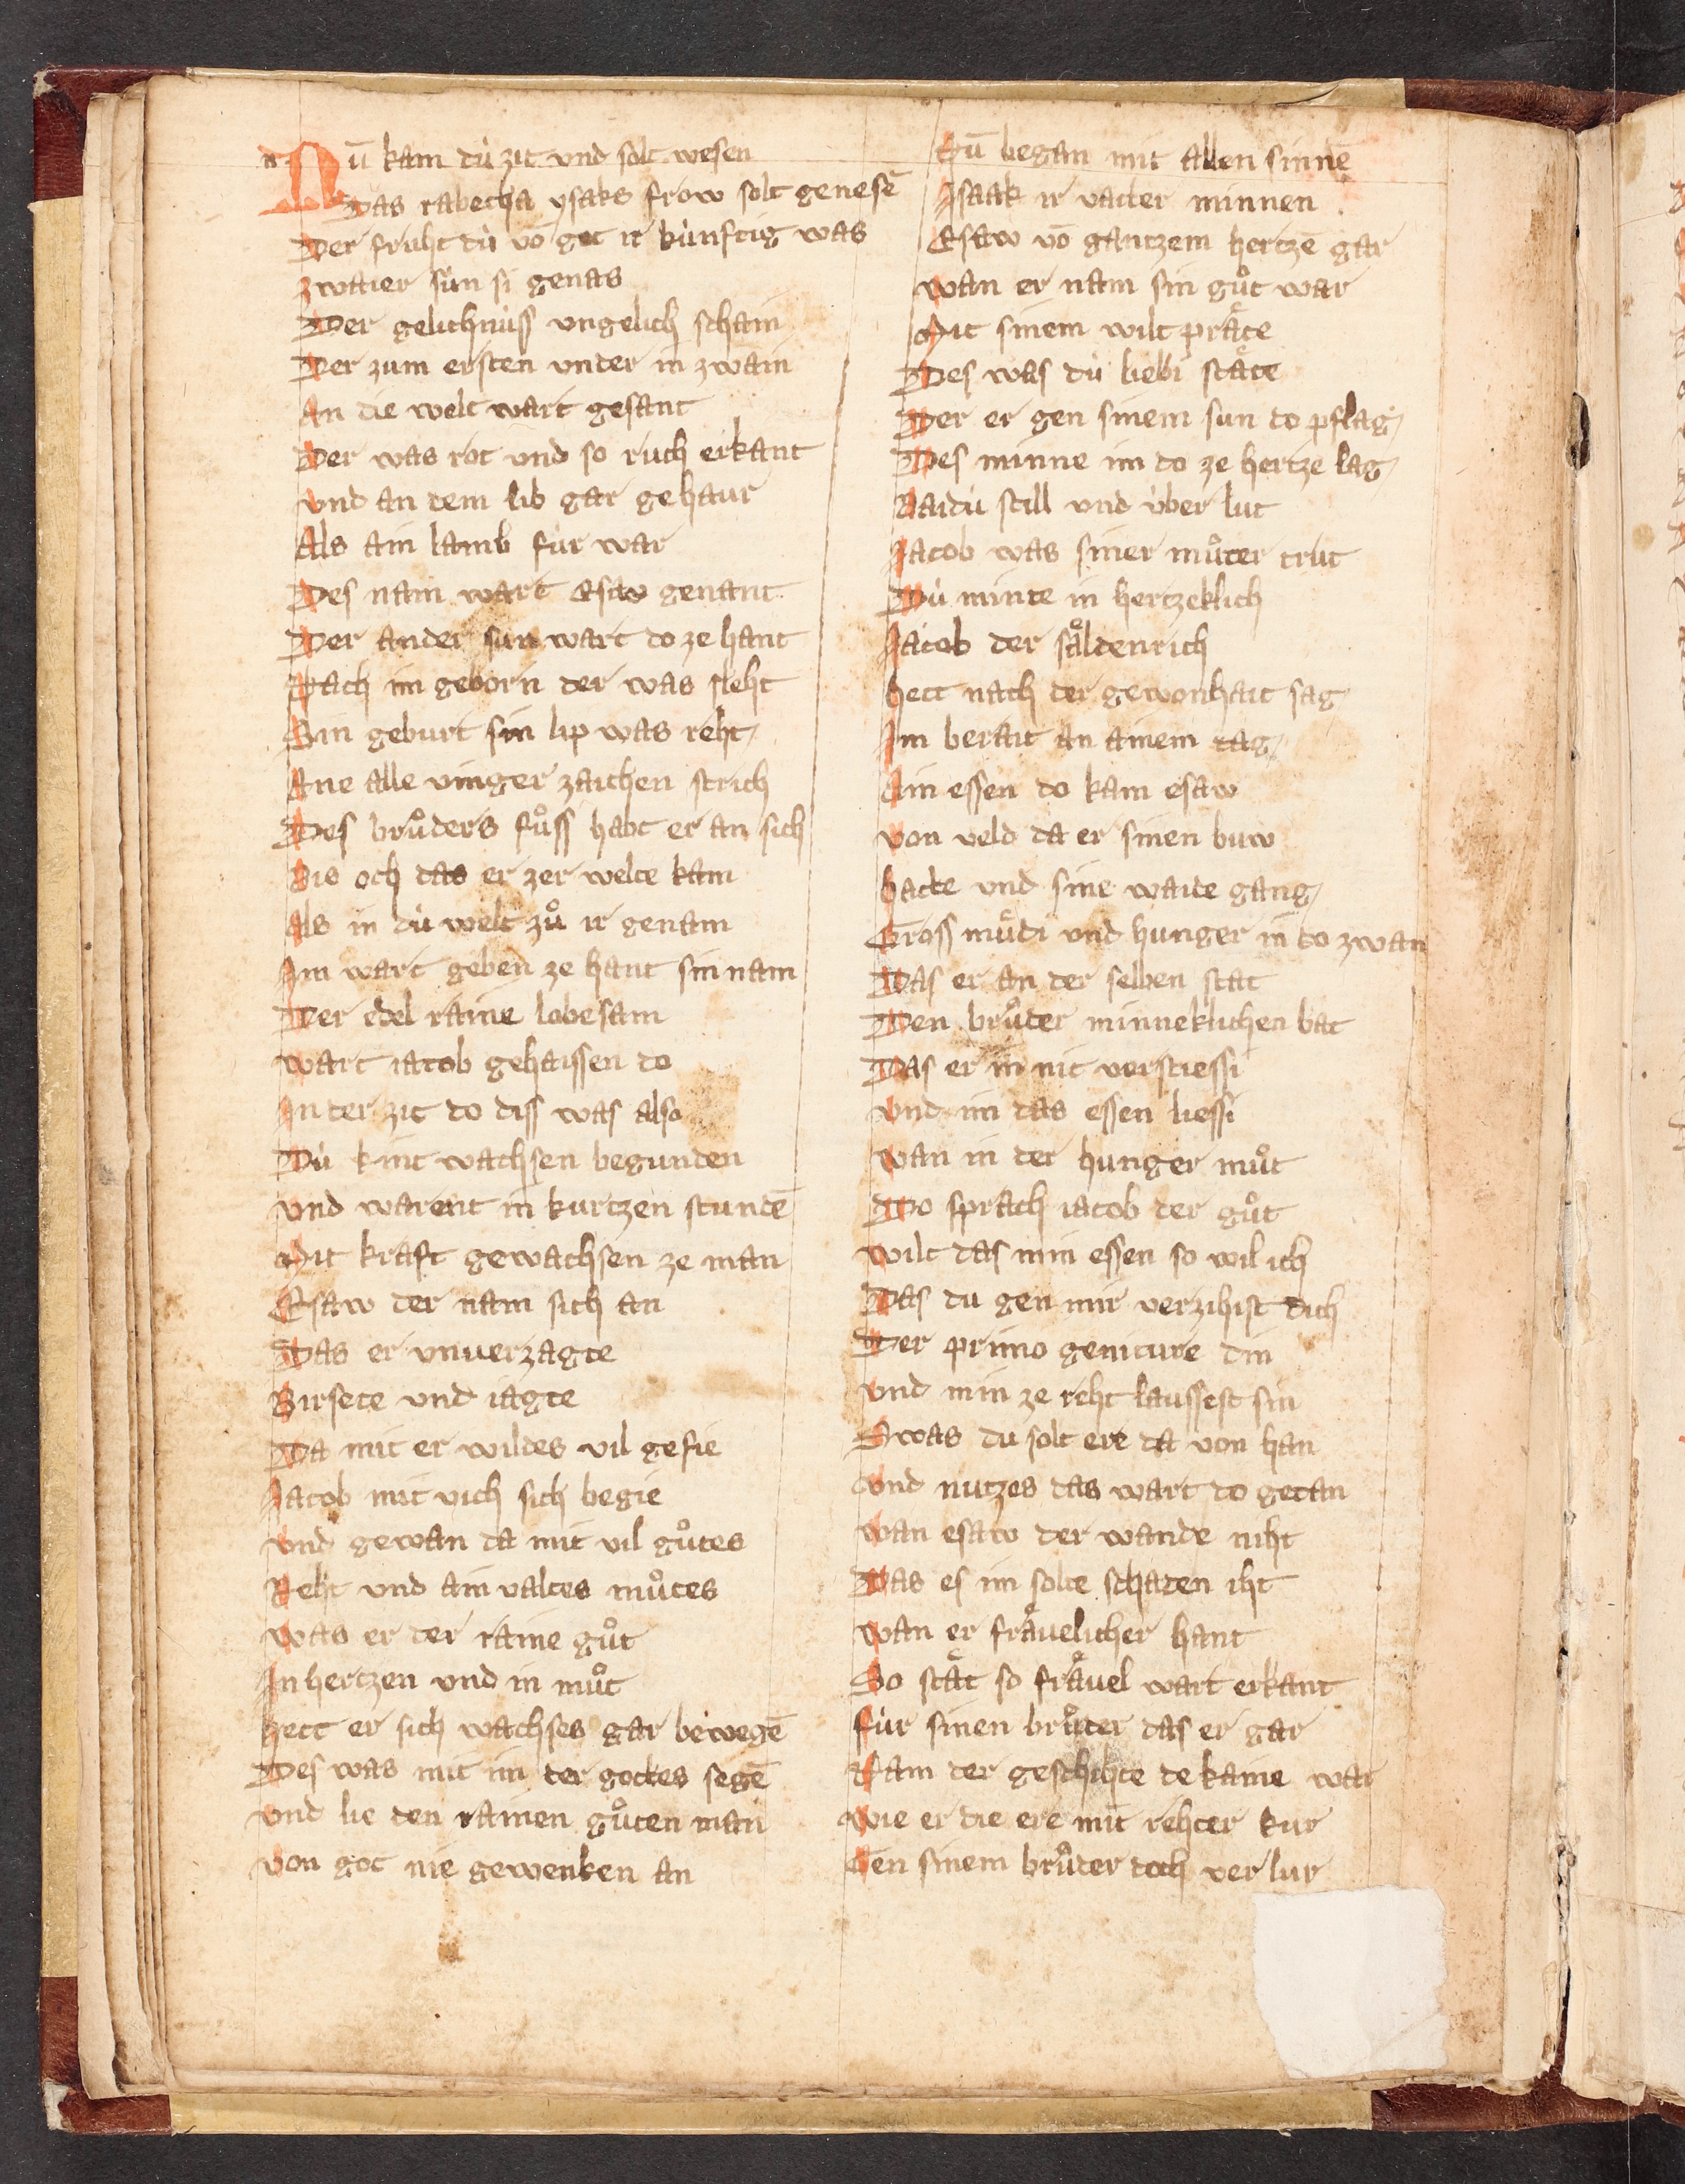 Nū kam dú zit und solt wesen
Das rabecha ysaks frow solt genesē
Der fruht dú vō got ir kúnftig was
zwaier sún si genas
Der gelichnúss ungelich schain
Der zum ersten under in zwain
An die welt wart gesant
Der was rot und so ruch erkant
und an dem lib gar gehaur
Als ain lamb fúr war
Des nam wart Esaw genant
Der ander sun wart do ze hant
Nach im geborn der was sleht
Sin geburt sin lip was reht
Ane alle vinger zaichen strich
Des bruͦders fuͦss habt er an sich
Bis och das er zer welte kam
Als in dú welt zuͦ ir genam
Im wart geben ze hant sin nam
Der edel raine lobesam
wart iacob gehaissen do
In der zit do diss was also
Dú kint wachsen begunden
und warent in kurtzen stundē
Mit kraft gewachsen ze man
Esaw der nam sich an
Das er unverzagte
Birsete und iagte
Da mit er wildes vil gefie
Jacob mit vich sich begie
und gewan da mit vil guͦtes
Reht und ain valtes muͦtes
was er der raine guͦt
In hertzen und in muͦt
hett er sich wachses gar bewegē
Des was mit im der gottes segē
und lie den rainen guͦten man
von got nie gewenken an
Nū began mit allen sinnē
Isaak ir vatter minnen
Esaw vō gantzem hertzē gar
wan er nam sin guͦt war
Mit sinem wilt praͤte
Des was dú liebi staͤte
Der er gen sinem sun do pflag
Des minne im do ze hertze lag
Baidú still und úber lut
Jacob was siner muͦter trut
Dú minte in hertzeklich
Jacob der saͤldenrich
hett nach der gewonhait sag
Im berait an ainem tag
Ain essen do kam esaw
von veld da er sinen buw
hatte und sine waide gang
Gross muͤdi und hunger in do zwan
Das er an der selben stat
Den bruͦder minneklichen bat
Das er in nit verstiessi
und im das essen liessi
wan in der hunger muͦt
Do sprach iacob der guͦt
wilt das min essen so wil ich
Das du gen mir verzihist dich
Der primo geniture din
und min ze reht laussest sin
Swas du solt ere da von han
und nutzes das wart do getan
wan esaw der wande niht
Das es im solte schaden iht
wan er fraͤuelicher hant
So staͤt so fraͤuel wart erkant
fúr sinen bruͦder das er gar
Nam der geschihte dekaine war
wie er die ere mit rehter kur
Gen sinem bruͦder doch ver lur